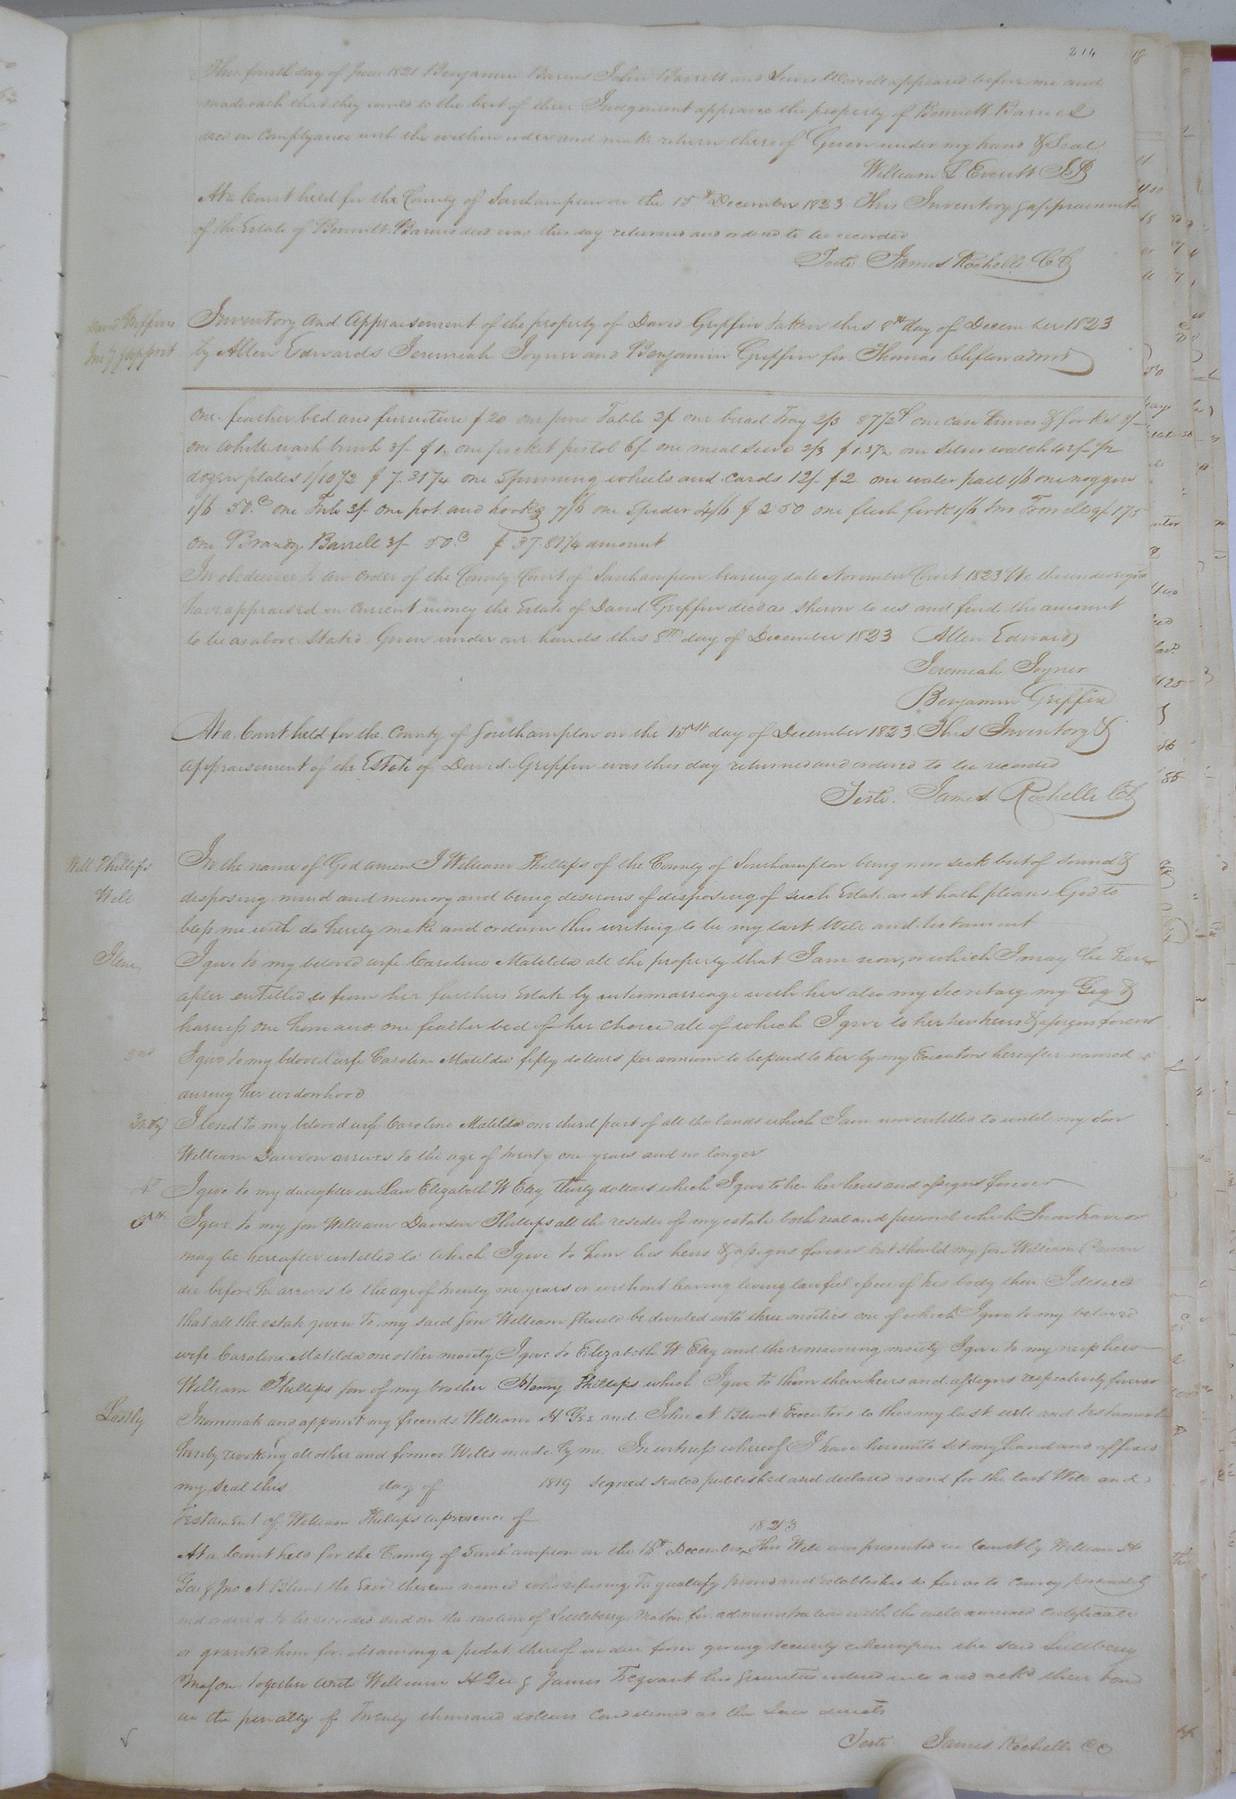 214
This fourth day of June 1821 Benjamin Barnes John Barrett and Lewis Worrell appeared before me and
made oath that they would to the best of their Judgement appraise the property of Bennett Barnes
decd in complyance with the within order and make return thereof Given under my hand & Seal
William Everitt JP
At a Court held for the County of Southampton on the 15th December 1823 This Inventory & appraisement
of the Estate of Bennett Barnes decd was this day returned and ordered to be recorded
Teste James Rochelle CC
David Griffins
Inv & Appmt
Inventory and Appraisement of the property of David Griffin taken this 8th day of December 1823
by Allen Edwards Jeremiah Joyner and Benjamin Griffin for Thomas Clifton admr
one feather bed and furniture $20 one pine Table 3/ one bread Tray 2/3 87½c one case knives & forks
one white wash brush 3/ $1 one pocket pistol 6/ one meal Seive 2/3 $1.37½ one Silver watch 42/ ½
dozen plates 1/10½ $7.31¼ one Spinning wheels and cards 12/ $2 one water pail 1/6 one noggin
1/6 50c one Tub 3/ one pot and hooks 7/6 one Spider 4/6 $2 50 one flesh fork 1/6 two 175
one Brandy Barrell 3/ 50c $37.81¼ amount
In obedience to an order of the County Court of Southampton bearing date November Court 1823 We the undersigned
have appraised in current money the Estate of David Griffin decd as shewn to us and find the amount
to be as above Stated Given under our hands this 8th day of December 1823 Allen Edwards
Jeremiah Joyner
Benjamin Griffin
At a Court held for the County of Southampton on the 15th day of December 1823 This Inventory &
appraisement of the Estate of David Griffin was this day returned and ordered to be recorded
Teste. James Rochelle CC
Will Phillips
Will
In the name of God amen I William Phillips of the County of Southampton being now sick but of Sound &
disposing mind and memory and being desirous of disposing of such Estate as it hath pleased God to
bless me with do hereby make and ordain this writing to be my last Will and testament
Item I give to my beloved wife Caroline Matilda all the property that I am now, or which I may be here
after entitled to from her fathers Estate by intermarriage with her also my Secretary my Gig &
harness one horse and one feather bed of her choice all of which I give to her her heirs & assigns forever
2nd I give to my beloved wife Caroline Matilda fifty dollars per annum to be paid to her by my Executors hereafter named
during her widowhood
3rdly I lend to my beloved wife Caroline Matilda one third part of all the lands which I am now entitled to until my Son
William Dawson arrives to the age of twenty one years and no longer
4th I give to my daughter in Law Elizabeth W Eley thirty dollars which I give to her her heirs and assigns forever
5th I give to my Son William Dawson Phillips all the residue of my estate both real and personal which I now have or
may be hereafter entitled to which I give to him his heirs & assigns forever but should my Son William Dawson
die before he arrives to the age of twenty one years or without leaving living lawful issue of his body then I desire
that all the estate given to my said Son William Should be divided into three moities one of which I give to my beloved
wife Caroline Matilda one other moity I give to Elizabeth W Eley and the remaining moity I give to my nephew
William Phillips Son of my brother Henry Phillips which I give to them their heirs and assigns respectively forever
Lastly I nominate and appoint my friends William H Gee and John N Blunt Executors to this my last will and testament
hereby revoking all other and former Wills made by me. In witness whereof I have hereunto set my hand and affixed
my Seal this day of 1819 Signed Sealed published and declared as and for the last Will and
Testament of William Phillips in presence of
At a Court held for the County of Southampton on the 15th December 1823 This Will was presented in Court by William H
Gee & Jno N Blunt the Exors therein named who refusing to qualify proved and established so far as to convey personalty
and ordered to be recorded and on the motion of Littleberry Mason for administration with the will annexed Certificate
is granted him for obtaining a probat thereof in due form giving security whereupon the said Littleberry
Mason together with William H Gee & James Trezvant his Securities entered into and ackd their bond
in the penalty of Twenty thousand dollars Conditioned as the Law directs
Teste James Rochelle CC